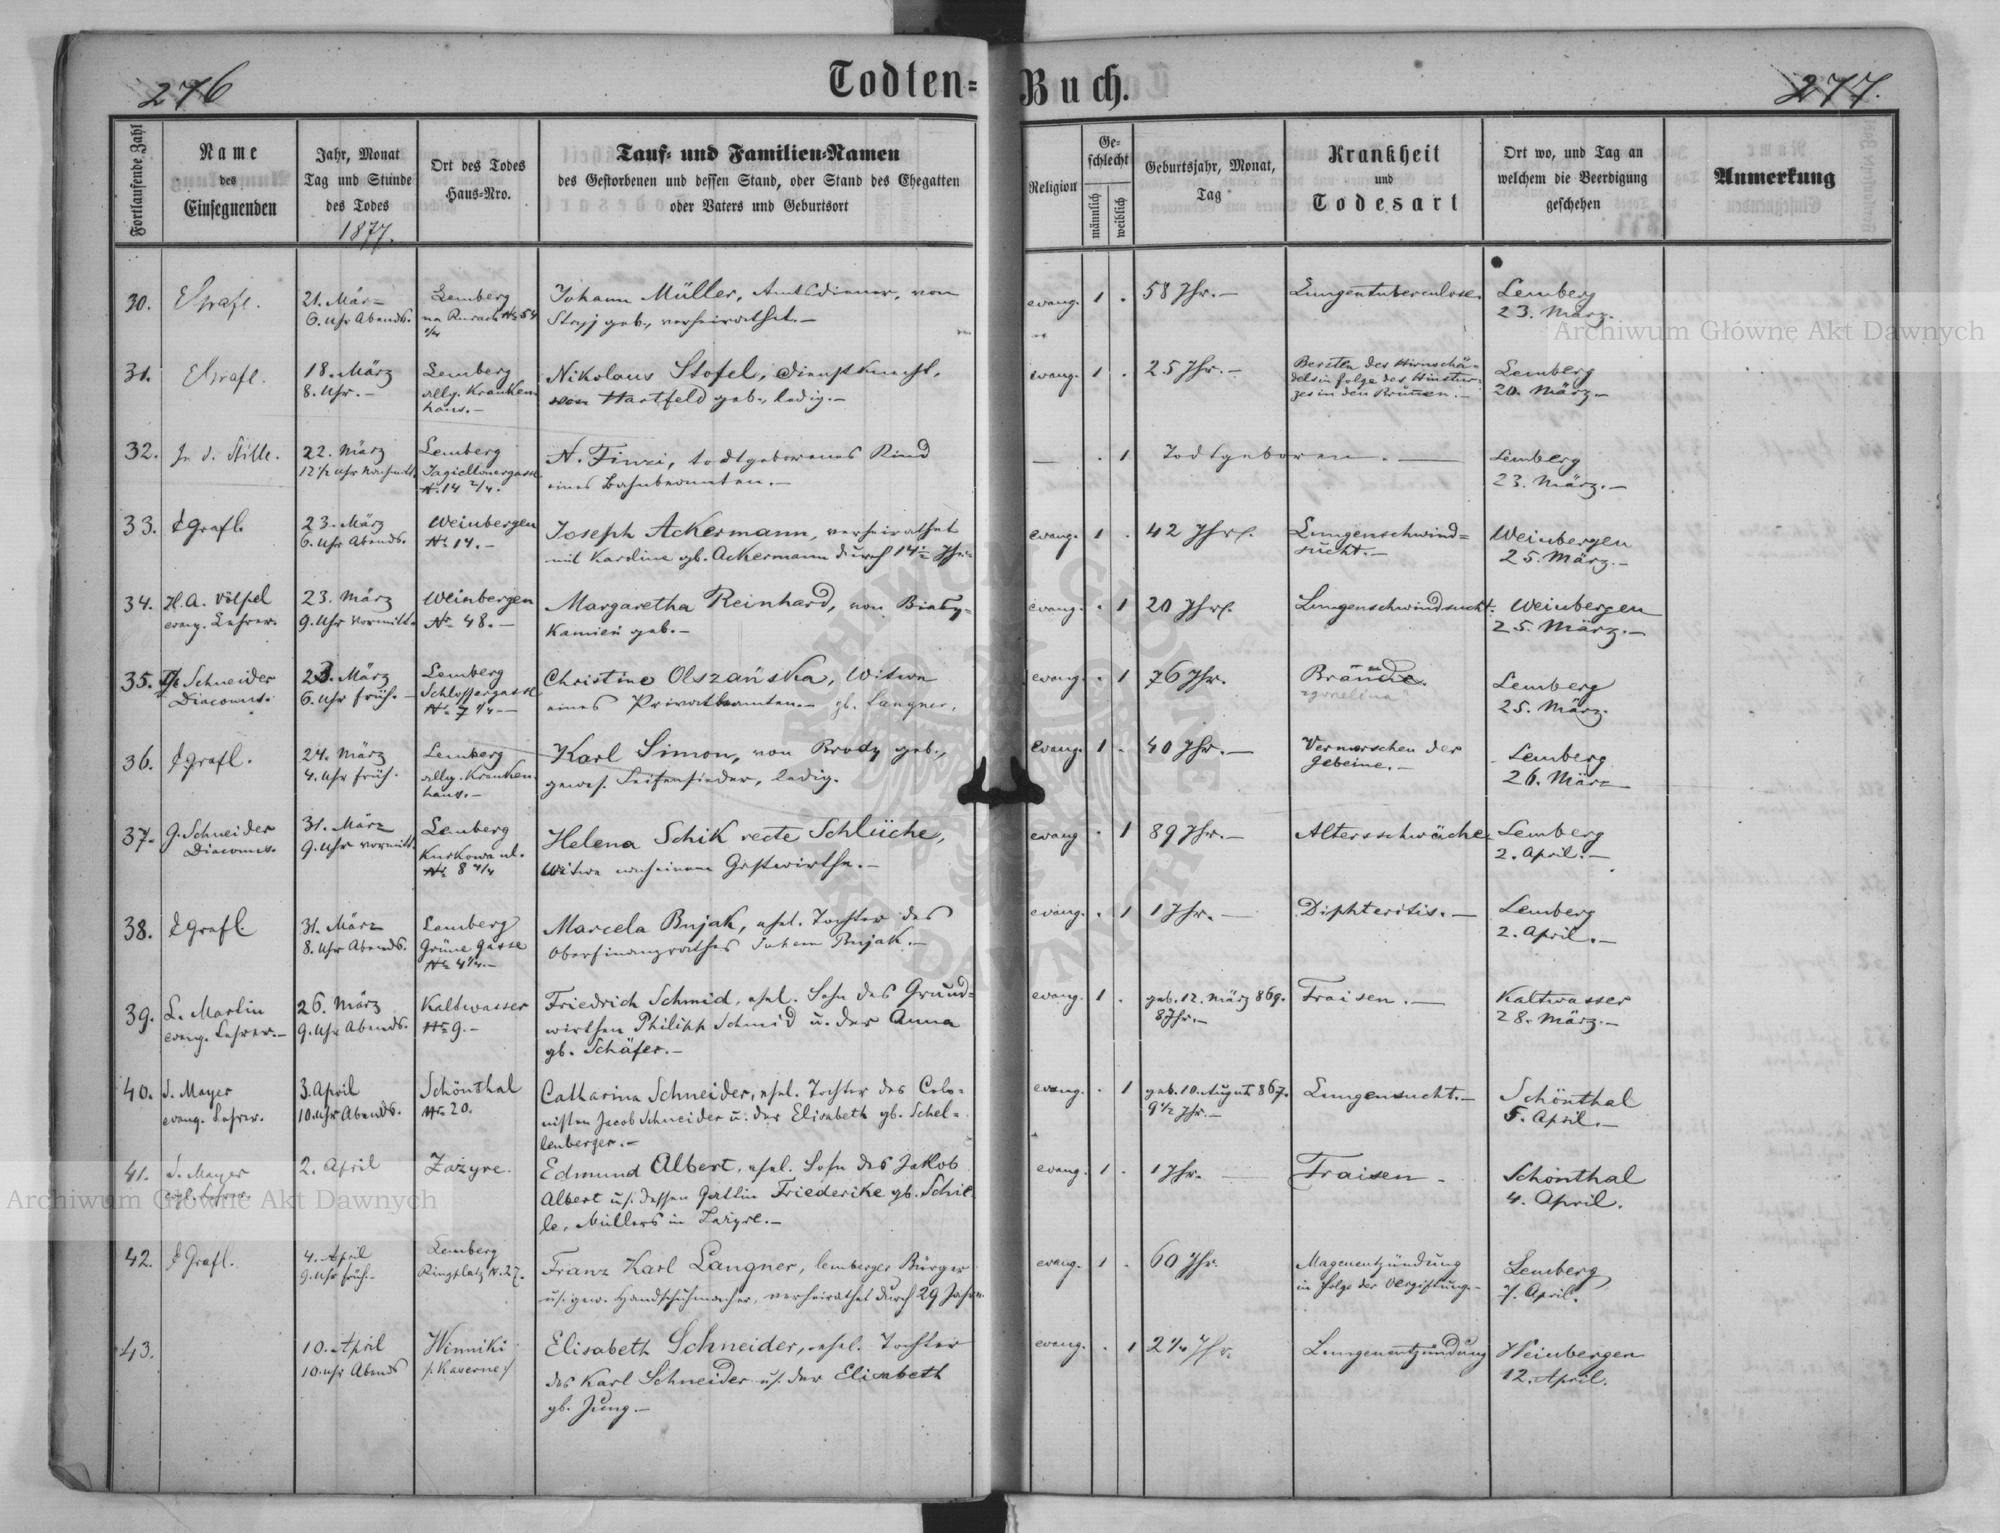 276
Todten-
Buch.
277.
Fortlaufende Zahl
Name
des
Einsegnenden
Jahr, Monat
Tag und Stunde
des Todes
1877.
Ort des Todes
Haus-Nro.
Tauf- und Familien-Namen
des Gestorbenen und dessen Stand, oder Stand des Ehegatten
oder Vaters und Geburtsort
Religion
Ge-
schlecht
männlich
weiblich
Geburtsjahr, Monat,
Tag
Krankheit
und
Todesart
Ort wo, und Tag an
welchem die Beerdigung
geschehen
Anmerkung
30.
21. März
6. Uhr Abends.
Lemberg
Johann Müller, Amtsdiener, von
Stryj geb., verheirathet.—
evang. 1 .
58 Jhr.—
Lungentuberculose.
Lemberg
23. März.
31.
18. März
8. Uhr.—
Lemberg
allg. Kranken
haus.—
Nikolaus Stofel, Dienstknecht,
von Hartfeld geb., ledig.—
evang. 1 .
25 Jhr.—
Bersten des Hirnschä-
dels in folge des
in den
Lemberg
20. März.—
32.
In d. Stille.
22. März
12 1/2 Uhr Nachmitt.
Lemberg
Jagiellonergasse
No 14 2/4.
A. Finzi, todtgeborenes Kind
eines Bahnbeamten.—
— . 1
Todtgeboren.—
Lemberg
23. März.—
33.
23. März
6. Uhr Abends.
Weinbergen
No 14.—
Joseph Ackermann, verheirathet
mit Karoline gb. Ackermann durch 14
evang. 1 .
42 Jhr.
Lungenschwind=
sucht.—
Weinbergen
25. März.—
34.
H. A. Völpel
evang. Lehrer.
23. März
9. Uhr Vormitt.
Weinbergen
No 48.—
Margaretha Reinhard, von Biały-
Kamień geb.—
evang. . 1
20 Jhr.
Lungenschwindsucht.
Weinbergen
25. März.—
35.
Schneider
Diaconus.
23. März
6. Uhr früh.—
Lemberg
Schlossergasse
No 7 1/4.—
Christine Olszańska, Witwe
eines Privatbeamten— gb. Langner.
evang. . 1
76 Jhr.
Brände.
zgorzelina?
Lemberg
25. März.
36.
24. März
4. Uhr früh.
Lemberg
allg. Kranken
haus.—
Karl Simon, von Brody geb.,
gewes. Seifensieder, ledig.
evang. 1 .
40 Jhr.—
der
Gebeine.—
Lemberg
26. März
37.
G. Schneider
Diaconus.
31. März
9. Uhr vormitt.
Lemberg
Kurkowa ul.
No 8 4/4
Helena Schik recte Schlüche,
Witwe nach einem Gastwirthe.—
evang . 1
89 Jhr.—
Altersschwäche.
Lemberg
2. April.—
38.
31. März
8. Uhr Abends.
Lemberg
Grüne Gasse
No 4 4/4.—
Marcela Bujak, ehel. Tochter des
Oberfinanzrathes Johann Bujak.—
evang. . 1
1 Jhr.—
Diphteritis.—
Lemberg
2. April.—
39.
L. Martin
evang. Lehrer.—
26. März
9. Uhr Abends.
Kaltwasser
No 9.—
Friedrich Schmid, ehel. Sohn des Grund-
wirthen Philipp Schmid u. der Anna
gb. Schäfer.—
evang. 1 .
geb. 12. März 869.
8 Jhr.—
Fraisen.—
Kaltwasser
28. März.—
40.
J. Mayer
evang. Lehrer.
3. April
10. Uhr Abends.
Schönthal
No 20.
Catharina Schneider, ehel. Tochter des Colo-
nisten Jacob Schneider u. der Elisabeth gb. Schel-
lenberger.—
evang. . 1
geb. 10. August 867.
9 1/2 Jhr.—
Lungensucht.—
Schönthal
5. April.—
41.
J. Mayer
Lehrer
2. April
Zażyre.
Edmund Albert, ehel. Sohn des Jakob
Albert u/. dessen Gattin Friederike gb. Schil
le, Müllers in Zażyre.—
evang. 1 .
1 Jhr.—
Fraisen.
Schönthal
4. April.
42.
4. April
9. Uhr früh.
Lemberg
Ringplatz N. 27.
Franz Karl Langner, lemberger Bürger
u/. gew. Handschuhmacher, verheirathet durch 29 Jahre.
evang. 1 .
60 Jhr.
Magenentzündung
in folge der Vergiftung.—
Lemberg
7. April.
43.
10. April
10. Uhr Abends
Winniki
/. Kaverne /
Elisabeth Schneider, ehel. Tochter
des Karl Schneider u/. der Elisabeth
gb. Jung.—
evang. . 1
Lungenentzündung
Weinbergen
12. April.
Archiwum Główne Akt Dawnych
Archiwum Główne Akt Dawnych
ARCHIWUM GŁÓWNE AKT DAWNYCH